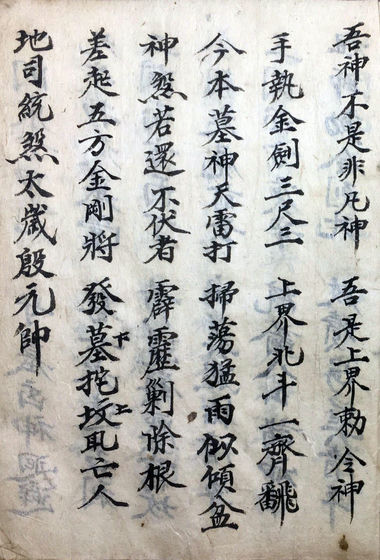 吾神不是非凡神 吾是上界勅令神
手執金劍三尺三 上界北斗一齊翻
今本墓神天雷打 掃蕩猛雨似傾盆
神煞若還不伏者 霹靂剿除根
差起五方金剛將 發墓下挖坟上亡人
地司統煞太歲殷元帥